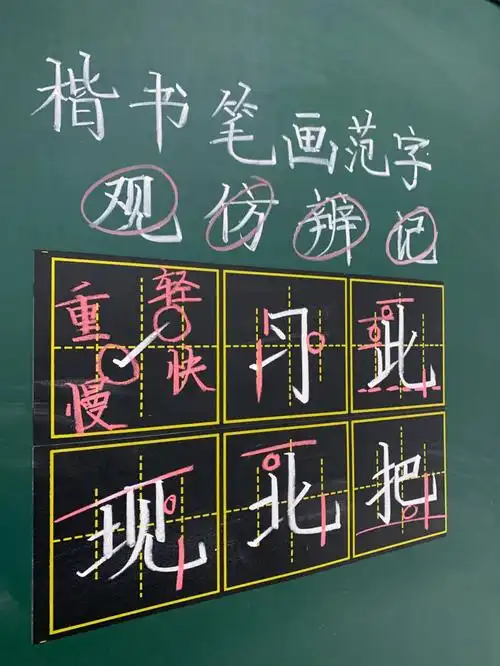 楷书笔画范字
观仿辨记
重 轻
慢 快
习 此
现 北 把